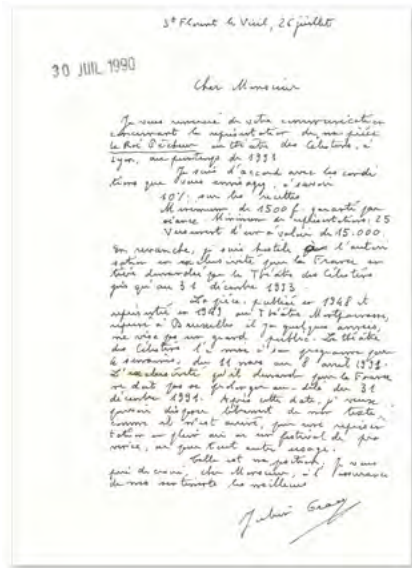 St Florent le Vieil, 26 juillet
30 JUIL. 1990
Cher Monsieur
Je vous remercie de votre communication
concernant la représentation de ma pièce
le Roi Pêcheur au théâtre des Célestins, à
Lyon, au printemps de 1991
Je suis d'accord avec les condi
tions que vous envisagez, à savoir
10% sur les recettes
Minimum de 1500 f. garanti par
séance. Minimum de représentations: 25
Versement d'un à valoir de 15.000.
En revanche, je suis hostile à l'autori
sation en exclusivité pour la France en
tière demandée par le Théâtre des Célestins
jusqu'au 31 décembre 1993
La pièce, publiée en 1948 et
représentée en 1949 au Théâtre Montparnasse,
reprise à Bruxelles il y a quelques années,
ne vise pas un grand public. Le théâtre
des Célestins l'a mise à son programme pour
du 11 mars au 8 avril 1991.
L'exclusivité qu'il demande pour la France
ne doit pas se prolonger au-delà du 31
décembre 1991. Après cette date, je veux
pouvoir disposer librement de mon texte
comme il m'est arrivé, pour une représen
tation en plein air ou un festival de pro
vince, ou pour tout autre usage.
Telle est ma position. Je vous
prie de croire, cher Monsieur, à l'assurance
de mes sentiments les meilleurs
Julien Gracq